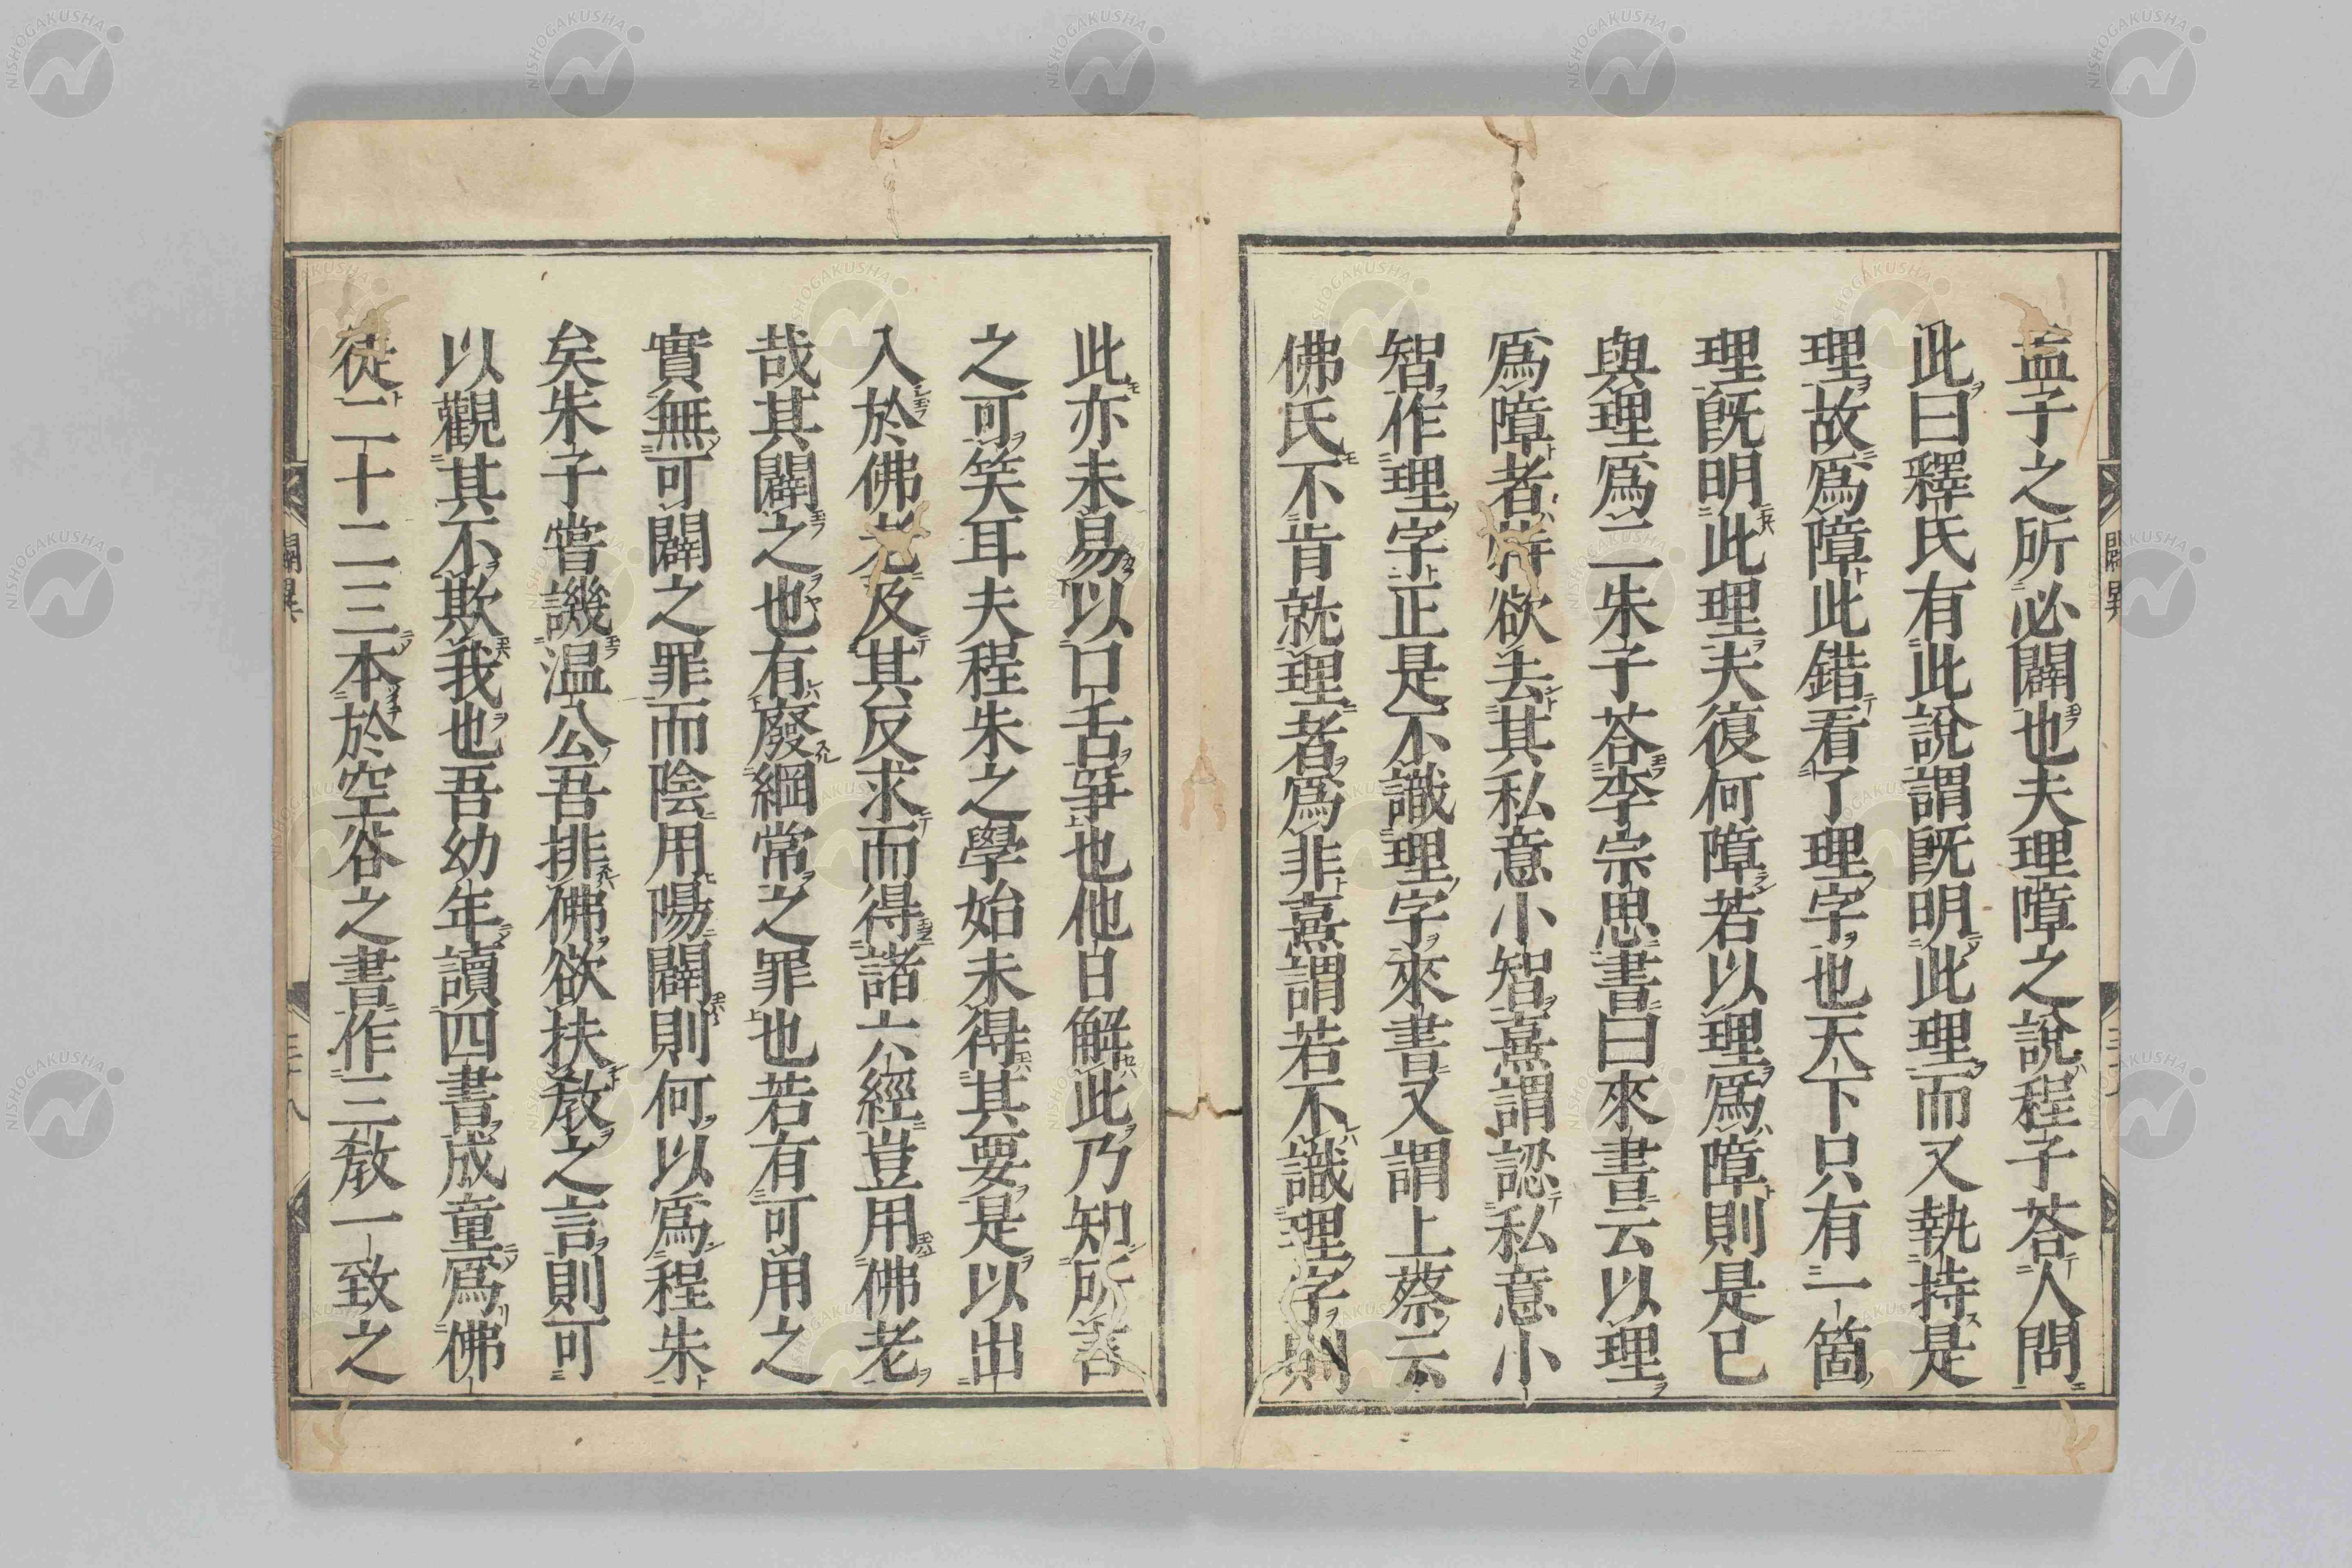 孟子之所必闢也夫理障之說程子荅人問
此曰釋氏有此說謂旣明此理而又執持是
理故爲障此錯看了理字也天下只有一箇
理旣明此理夫復何障若以理爲障則是已
與理爲二朱子荅李宗思書曰來書云以理
爲障者特欲去其私意小智熹謂認私意小
智作理字正是不識理字來書又謂上蔡云
佛氏不肯就理者爲非熹謂若不識理字則
此亦未易以口舌爭也他日解此乃知所言
之可笑耳夫程朱之學始未得其要是以出
入於佛老及其反求而得諸六經豈用佛老
哉其闢之也有廢綱常之罪也若有可用之
實無可闢之罪而陰用陽闢則何以爲程朱
矣朱子嘗譏温公吾排佛欲扶敎之言則可
以觀其不欺我也吾幼年讀四書成童爲佛
徒二十二三本於空谷之書作三敎一致之
闢異
三十八
闢異
NISHOGAKUSHA